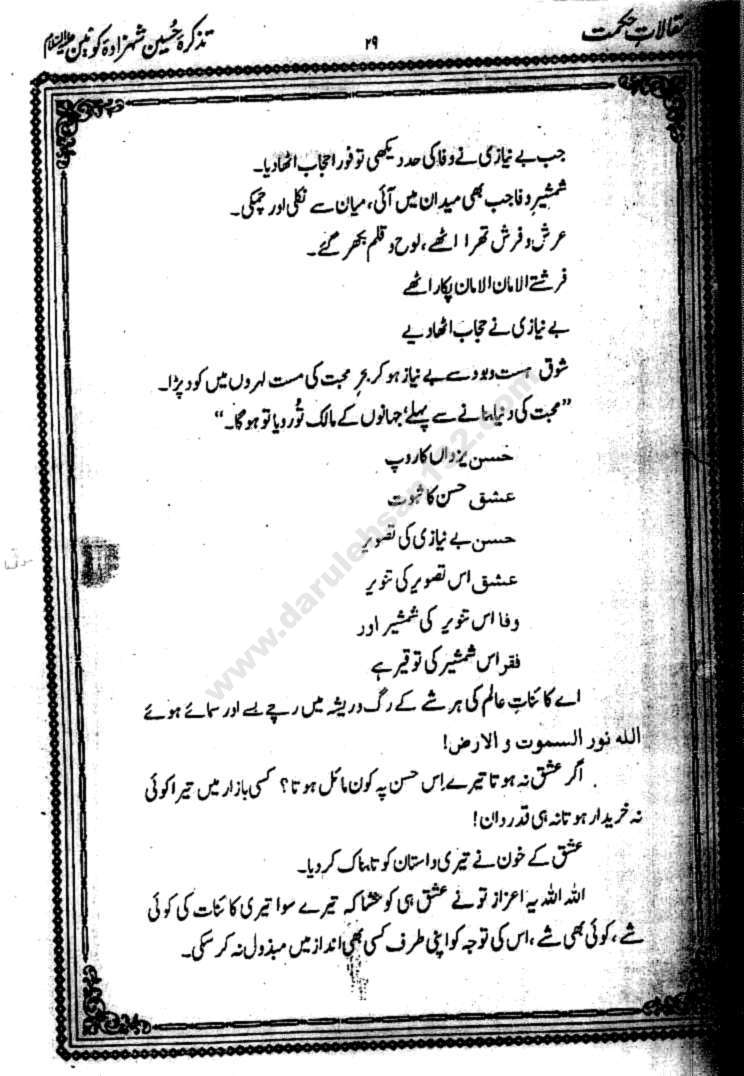 مقالاتِ حکمت
۲۹
تذکرۂ حُسین شہزادۂ کونین علیہ السلام
جب بے نیازی نے وفا کی حد دیکھی تو فورا حجاب اٹھا دیا۔
شمشیرِ وفا جب بھی میدان میں آئی، میان سے نکلی اور چمکی۔
عرش و فرش تھرا اٹھے، لوح و قلم بکھر گئے۔
فرشتے الامان الامان پکار اٹھے
بے نیازی نے حجاب اٹھا دیے
شوق ہست و بود سے بے نیاز ہو کر بحرِ محبت کی مست لہروں میں کود پڑا۔
”محبت کی دنیا بنانے سے پہلے‘ جہانوں کے مالک تُو رویا تو ہوگا۔“
حسن یزداں کا روپ
عشق حسن کا ثبوت
حسن بے نیازی کی تصویر
عشق اس تصویر کی تنویر
وفا اس تنویر کی شمشیر اور
فقر اس شمشیر کی توقیر ہے
اے کائناتِ عالم کی ہر شے کے رگ و ریشہ میں رچے بسے اور سمائے ہوئے
اللہ نور السموت و الارض!
اگر عشق نہ ہوتا تیرے اِس حسن پہ کون مائل ہوتا؟ کسی بازار میں تیرا کوئی
نہ خریدار ہوتا نہ ہی قدردان!
عشق کے خون نے تیری داستان کو تابناک کر دیا۔
اللہ اللہ یہ اعزاز تو نے عشق ہی کو بخشا کہ تیرے سوا تیری کائنات کی کوئی
شے، کوئی بھی شے، اس کی توجہ کو اپنی طرف کسی بھی انداز میں مبذول نہ کر سکی۔
www.darulehsan132.com